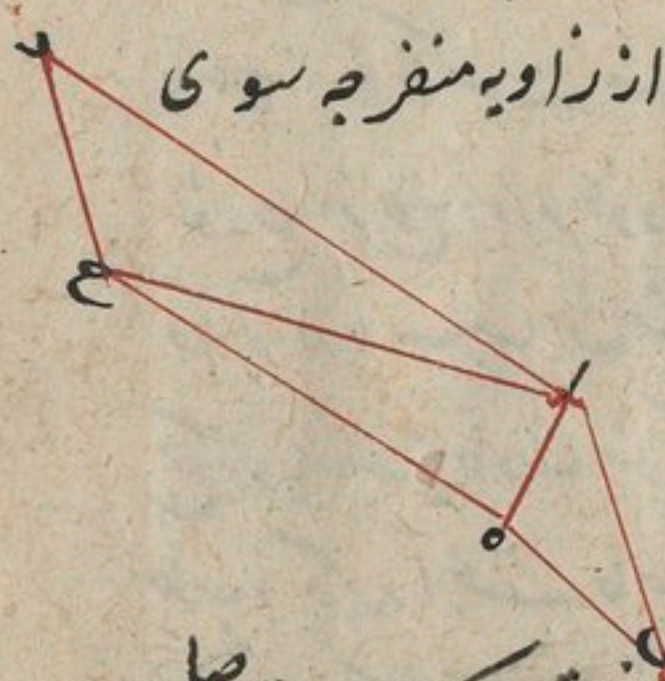 از زاویه منفرجه سوی
د
ح
ا
ه